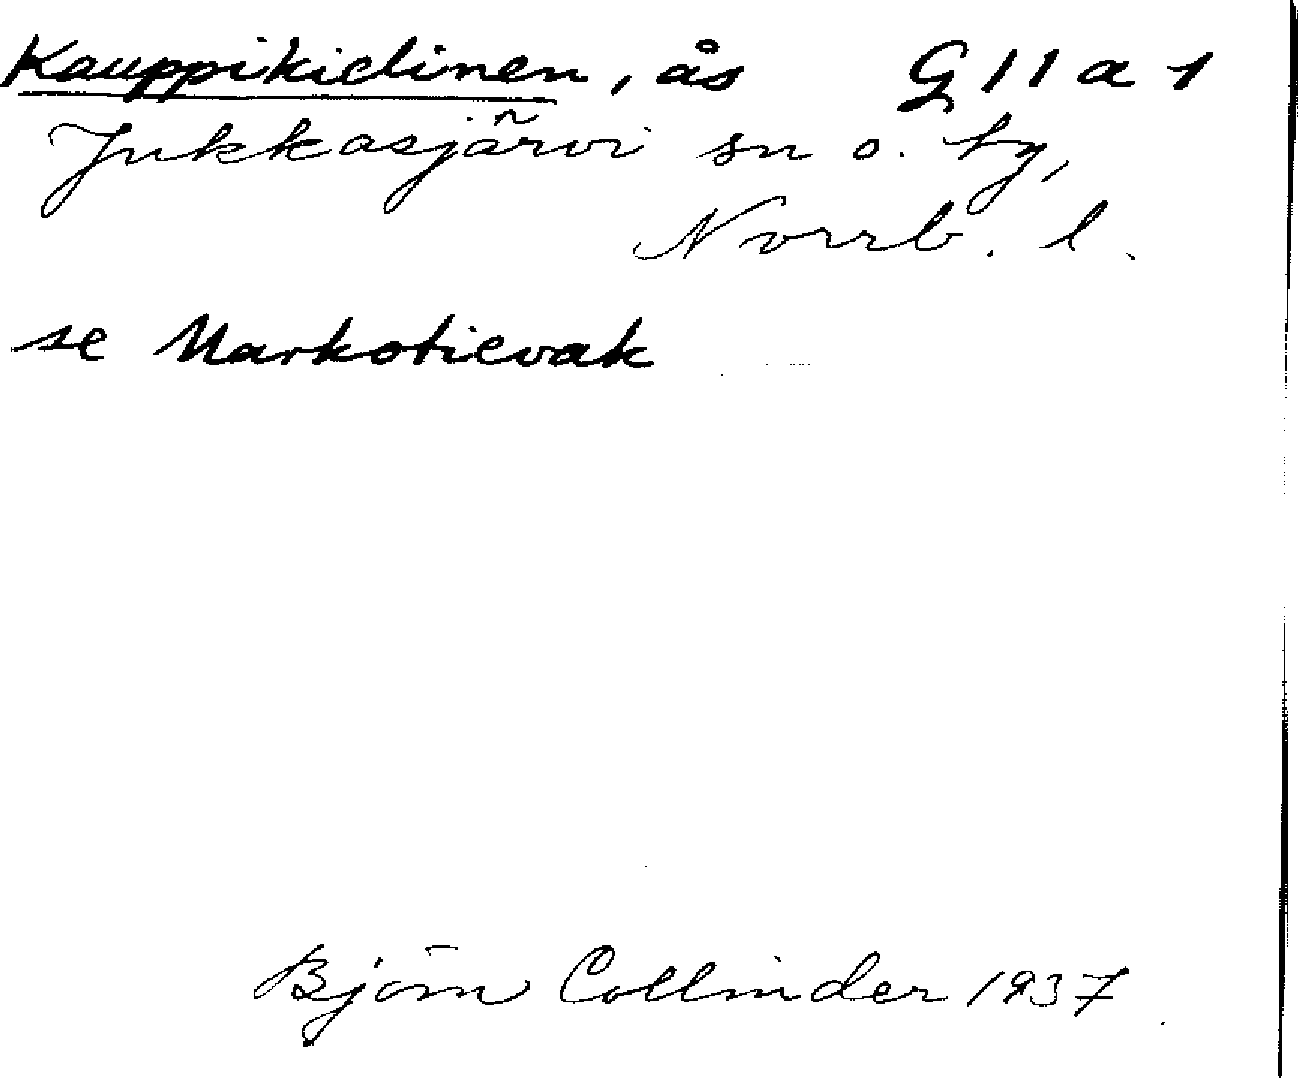 Kauppikielinen, ås G 11 a 1
Jukkasjärvi sn o. by,
Norrb. l.
se Markotievak
Björn Collinder 1937